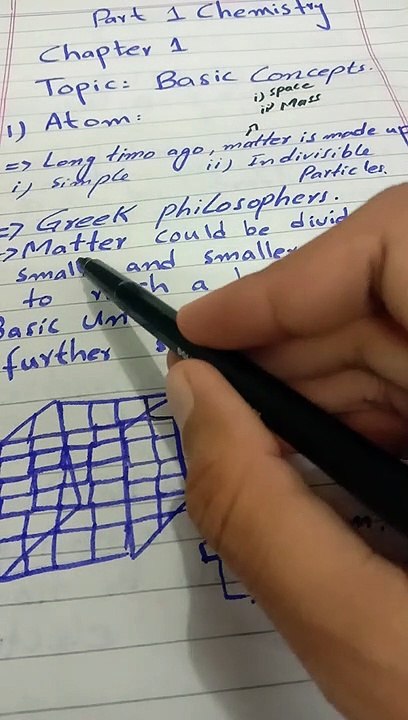 Part 1 Chemistry
Chapter 1
Topic: Basic Concepts.
i) space
ii) Mass
1) Atom:
=> Long timo ago, matter is made up
i) simple ii) Indivisible
Particles.
=> Greek philosophers.
=> Matter could be divid
small and smaller
to a
Basic Un
further